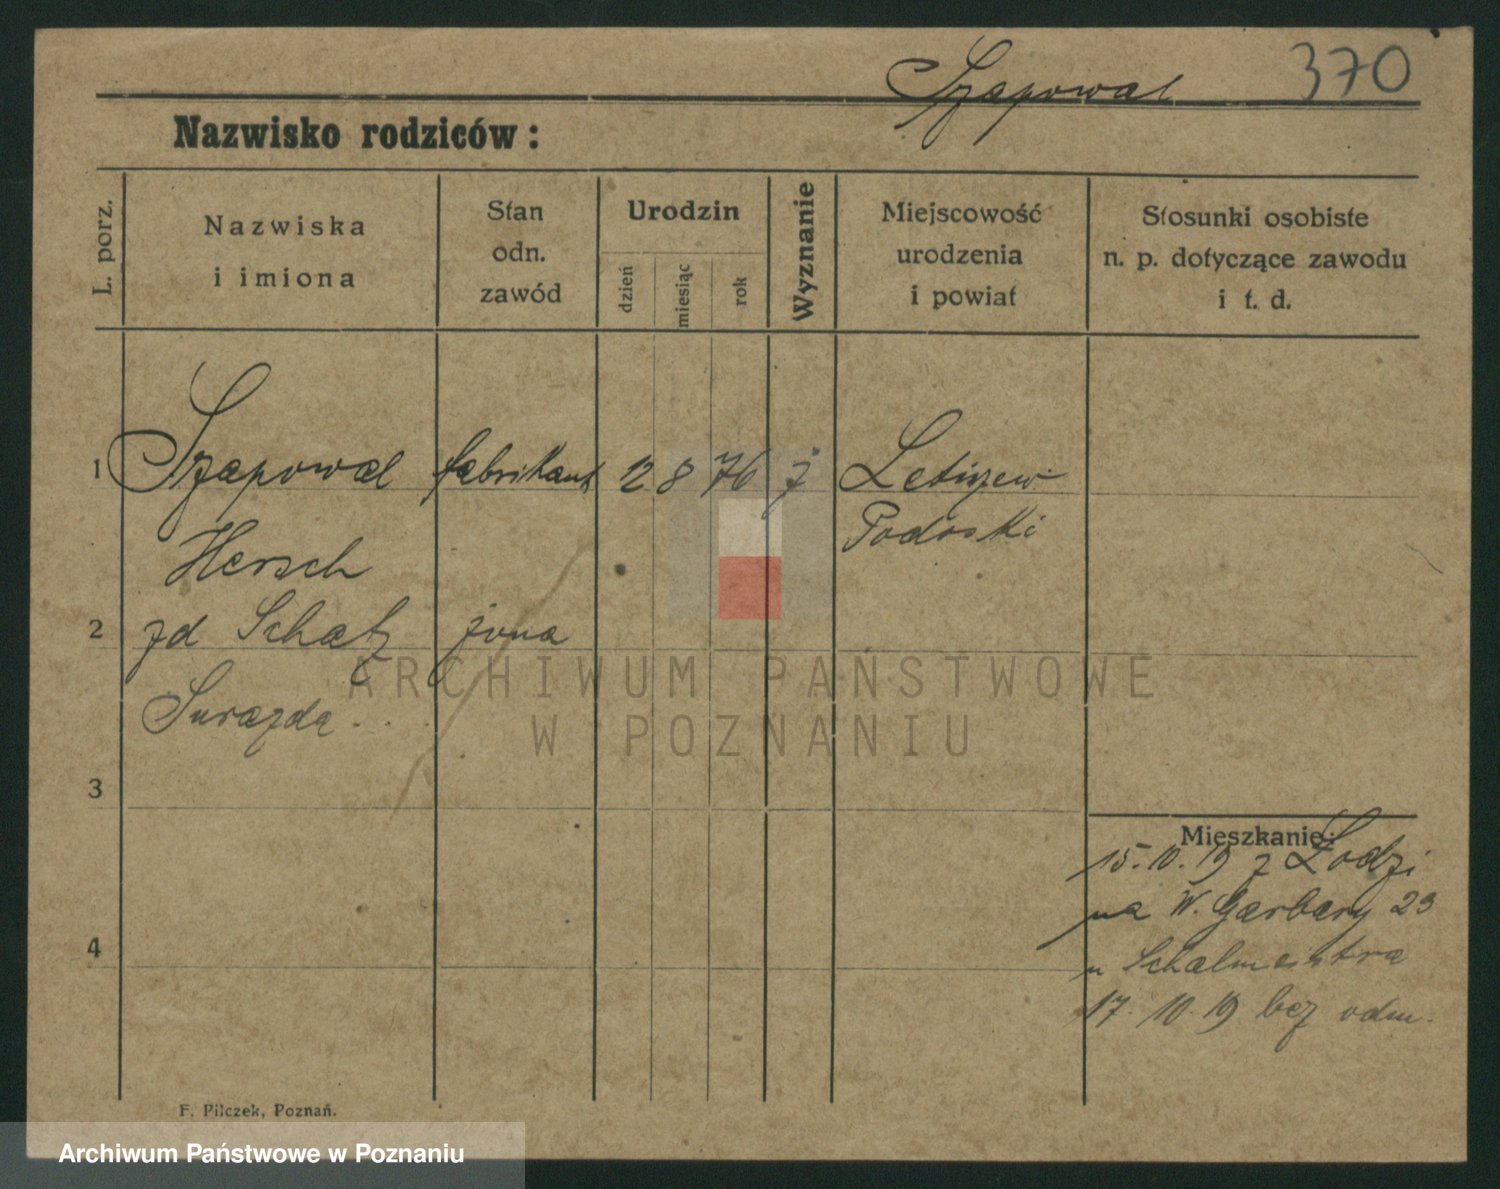 Szapowal 370
Nazwisko rodziców:
L. porz.
Nazwiska
i imiona
Stan
odn.
zawód
Urodzin
dzień
miesiąc
rok
Wyznanie
Miejscowość
urodzenia
i powiat
Stosunki osobiste
n. p. dotyczące zawodu
i t. d.
1 Szapowal fabrikant 12 8 76 j Letizew
Hersch Podoski
2 zd Schatz żona
3
Mieszkanie:
15.10.19 z Łodzi
na W. Garbary 23
u
4
17.10.19 bez odm.
F. Pilczek, Poznań.
ARCHIWUM PAŃSTWOWE
W POZNANIU
Archiwum Państwowe w Poznaniu